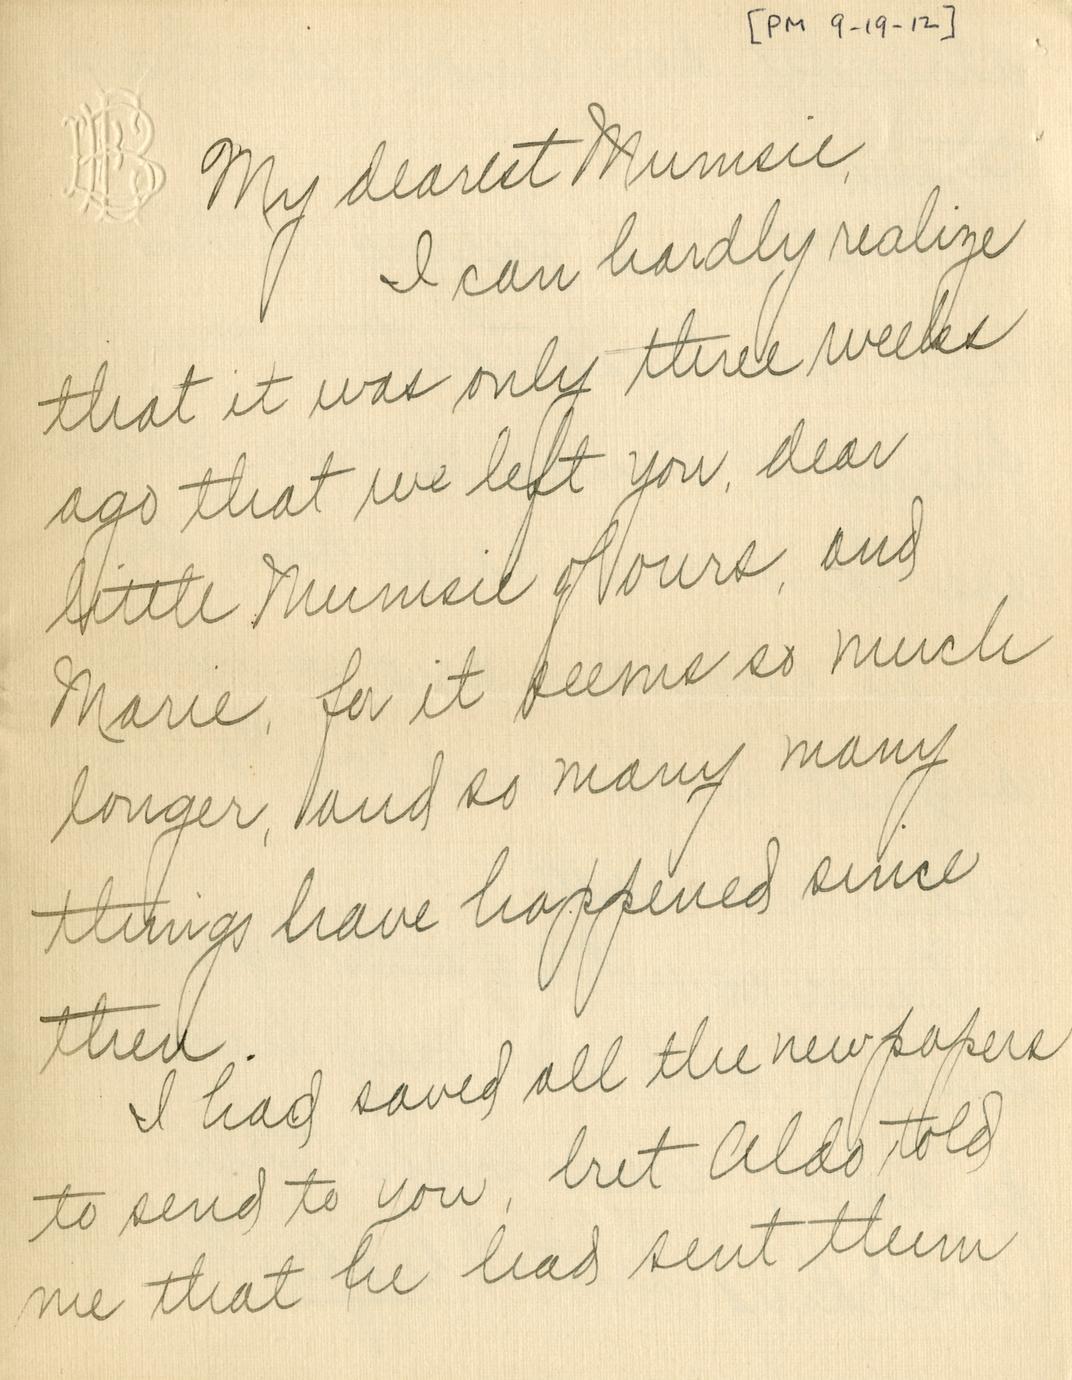 [PM 9-19-12]
My dearest Mumsie,
I can hardly realize
that it was only three weeks
ago that we left you, dear
little Mumsie of ours, and
Marie, for it seems so much
longer, and so many many
things have happened since
then.
I had saved all the newpapers
to send to you, but Aldo told
me that he had sent them